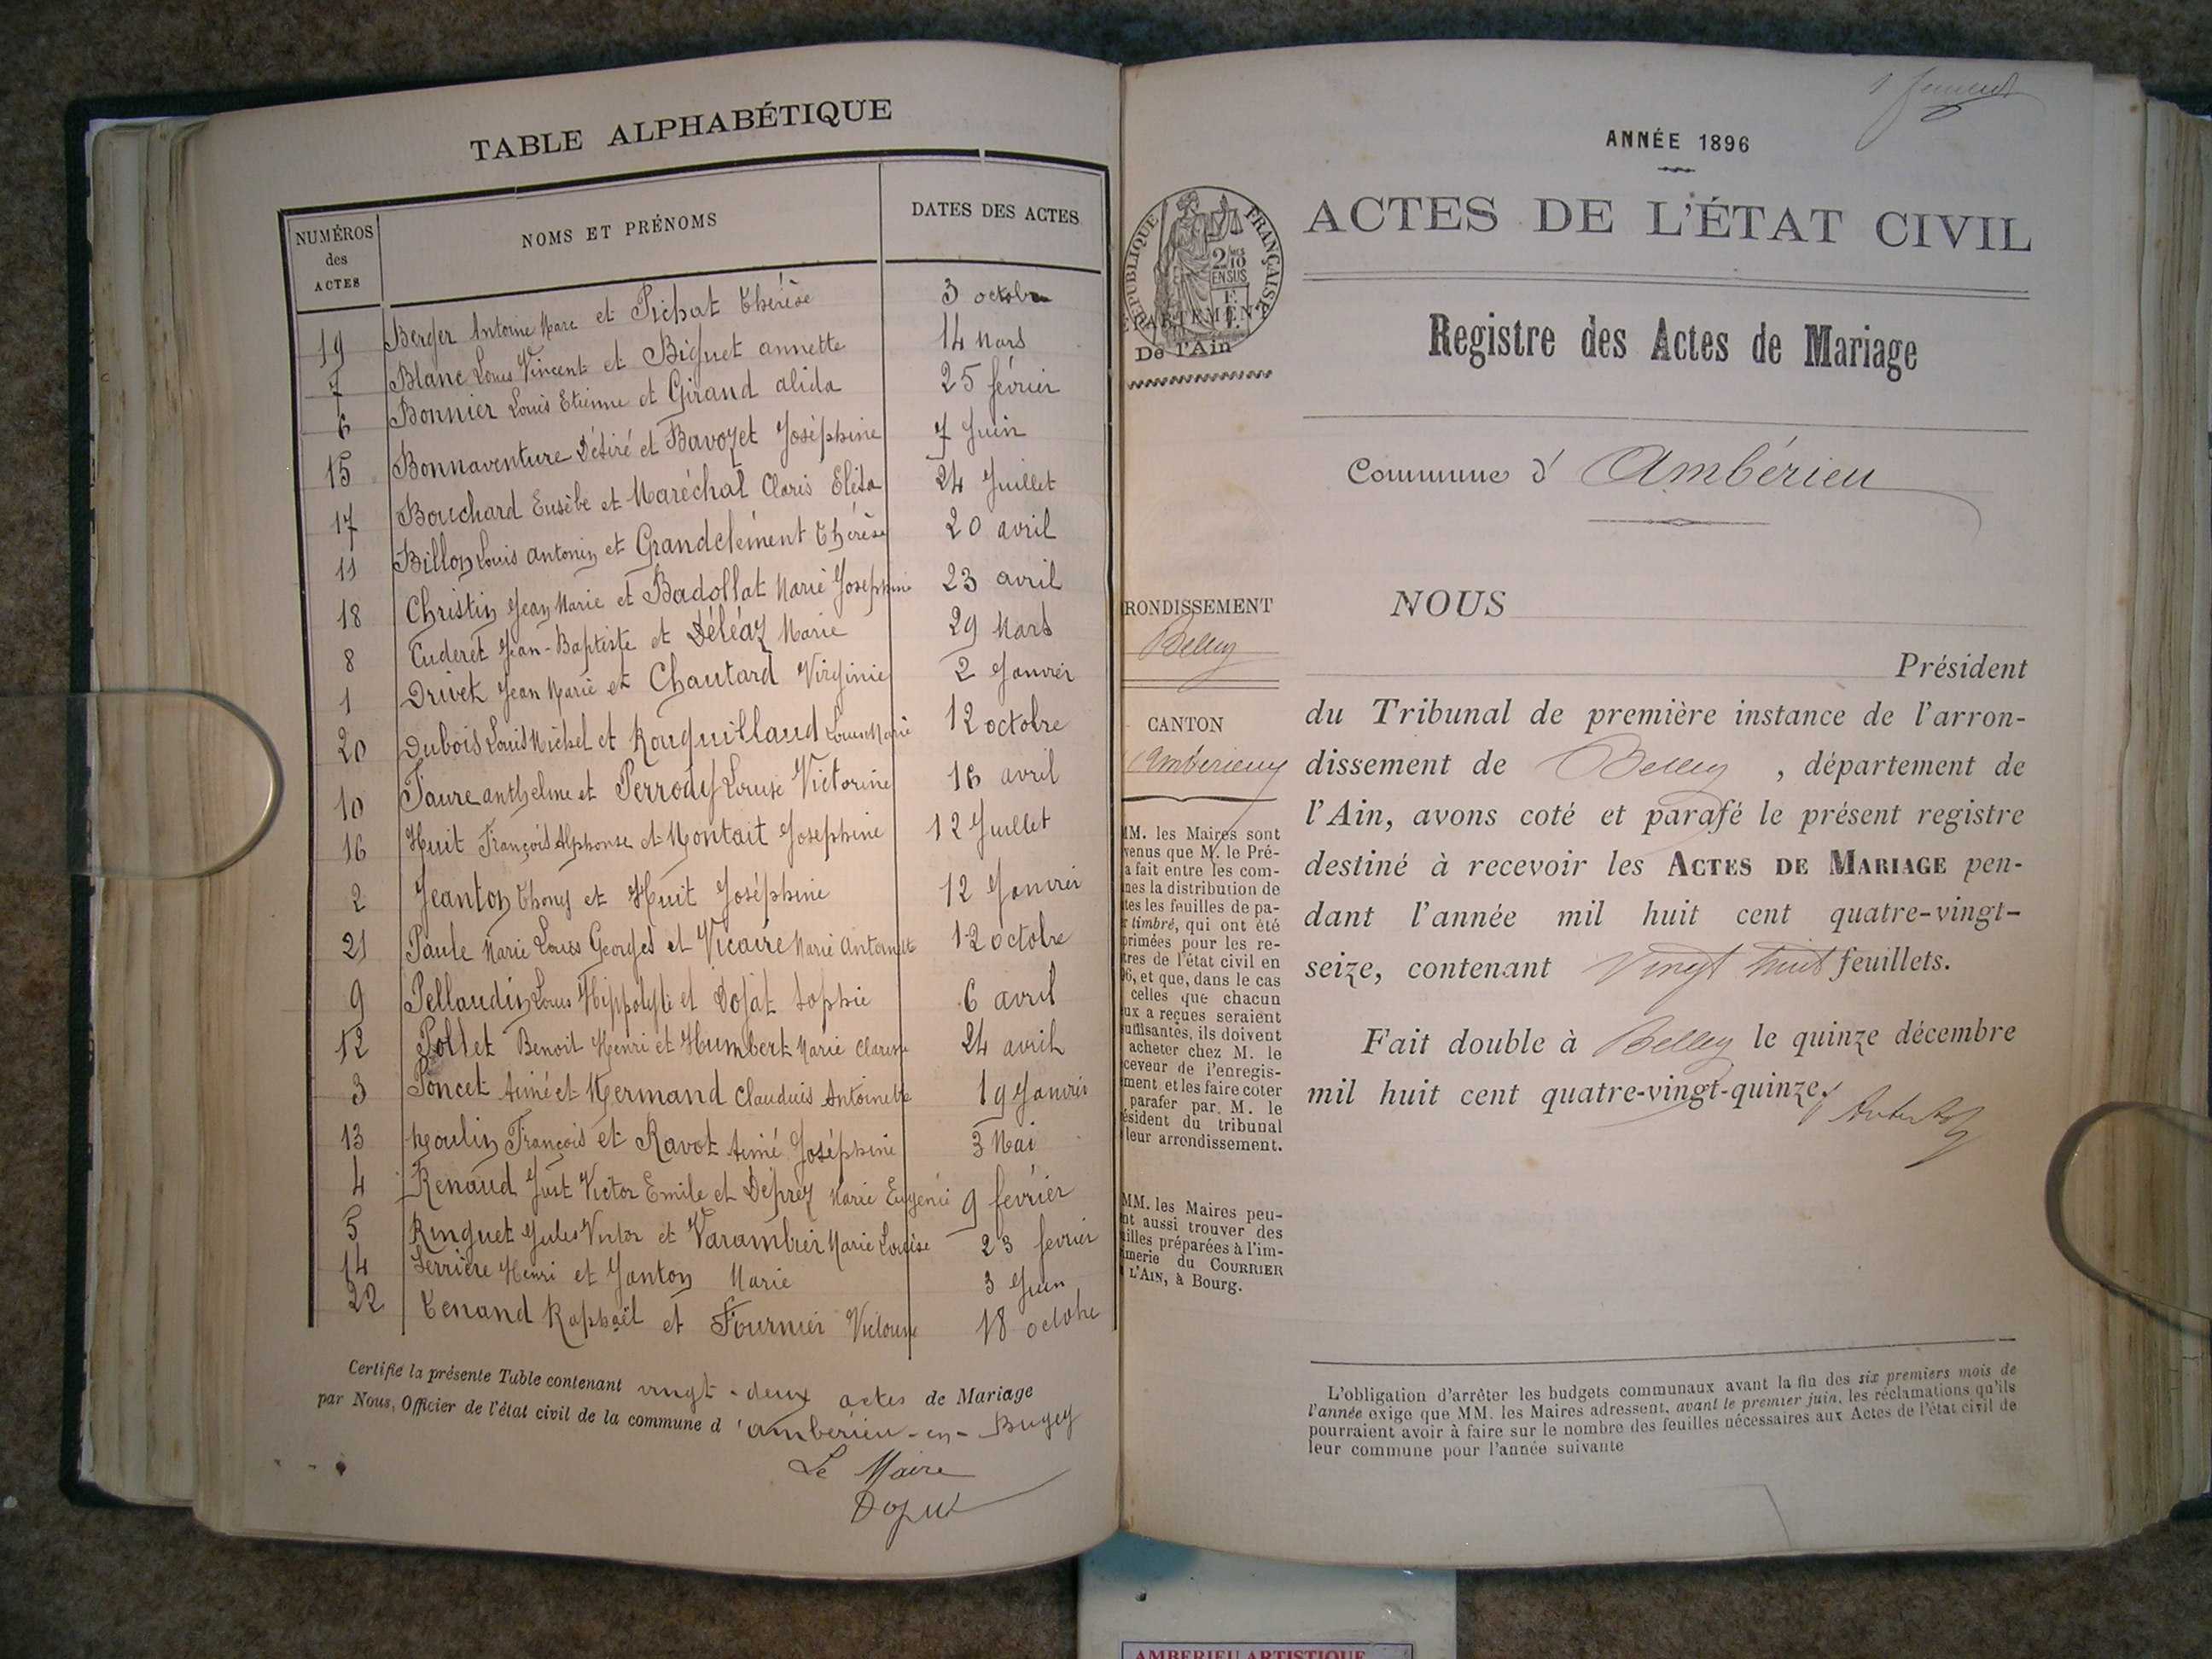 TABLE ALPHABÉTIQUE
NUMÉROS des ACTES NOMS ET PRÉNOMS DATES DES ACTES
19 Berger Antoine Marc et Pichat Thérèse 3 octobre
7 Blanc Louis Vincent et Biguet annette 14 Mars
6 Bonnier Louis Etienne et Girand alida 25 février
15 Bonnaventure Désiré et Bavozet Joséphine 7 Juin
17 Bouchard Eusèbe et Maréchal Claris Elisa 24 Juillet
11 Billon Louis antonin et Grandclément Thérèse 20 avril
18 Christin Jean Marie et Badollat Marie Josephine 23 avril
8 Cuderet Jean-Baptiste et Déléaz Marie 29 Mars
1 Drivet Jean Marie et Chautard Virginie 2 Janvier
20 Dubois Louis Michel et Rouquillaud Louise Marie 12 octobre
10 Faure anthelme et Perrody Louise Victorine 16 avril
16 Huit François Alphonse et Montait Josephine 12 Juillet
2 Jeanton Thony et Huit Joséphine 12 Janvier
21 Paule Marie Louis Georges et Vicaire Marie Antoinette 12 octobre
9 Pellaudin Louis Hippolyte et Dojat Sophie 6 avril
12 Pollet Benoit Henri et Humbert Marie Clarisse 24 avril
3 Poncet Aimé et Mermand Claudine Antoinette 19 Janvier
13 Moulin François et Ravot Aimé Joséphine 3 Mai
4 Renaud Just Victor Emile et Déprez Marie Eugénie 9 février
5 Ringuet Jules Victor et Varambier Marie Louise 23 fevrier
14 Serrière Henri et Janton Marie 3 Juin
22 Tenand Raphaël et Fournier Victorine 18 octobre
Certifie la présente Table contenant vingt-deux actes de Mariage
par Nous, Officier de l'état civil de la commune d'ambérieu-en-Bugey
Le Maire
ANNÉE 1896
ACTES DE L'ÉTAT CIVIL
RÉPUBLIQUE FRANÇAISE
2/10 EN SUS
De l'Ain
Registre des Actes de Mariage
Commune d'Ambérieu
RONDISSEMENT
Belley
CANTON
Ambérieu
MM. les Maires sont
venus que M. le Pré-
a fait entre les com-
nes la distribution de
tes les feuilles de pa-
r timbré, qui ont été
primées pour les re-
tres de l'état civil en
96, et que, dans le cas
celles que chacun
ux a reçues seraient
uffisantes, ils doivent
acheter chez M. le
ceveur de l'enregis-
ment et les faire coter
parafer par M. le
ésident du tribunal
leur arrondissement.
MM. les Maires peu-
nt aussi trouver des
illes préparées à l'im-
merie du COURRIER
L'AIN, à Bourg.
NOUS
Président
du Tribunal de première instance de l'arron-
dissement de Belley, département de
l'Ain, avons coté et parafé le présent registre
destiné à recevoir les ACTES DE MARIAGE pen-
dant l'année mil huit cent quatre-vingt-
seize, contenant Vingt huit feuillets.
Fait double à Belley le quinze décembre
mil huit cent quatre-vingt-quinze.
L'obligation d'arrêter les budgets communaux avant la fin des six premiers mois de
l'année exige que MM. les Maires adressent, avant le premier juin, les réclamations qu'ils
pourraient avoir à faire sur le nombre des feuilles nécessaires aux Actes de l'état civil de
leur commune pour l'année suivante
AMBERIEU ARTISTIQUE